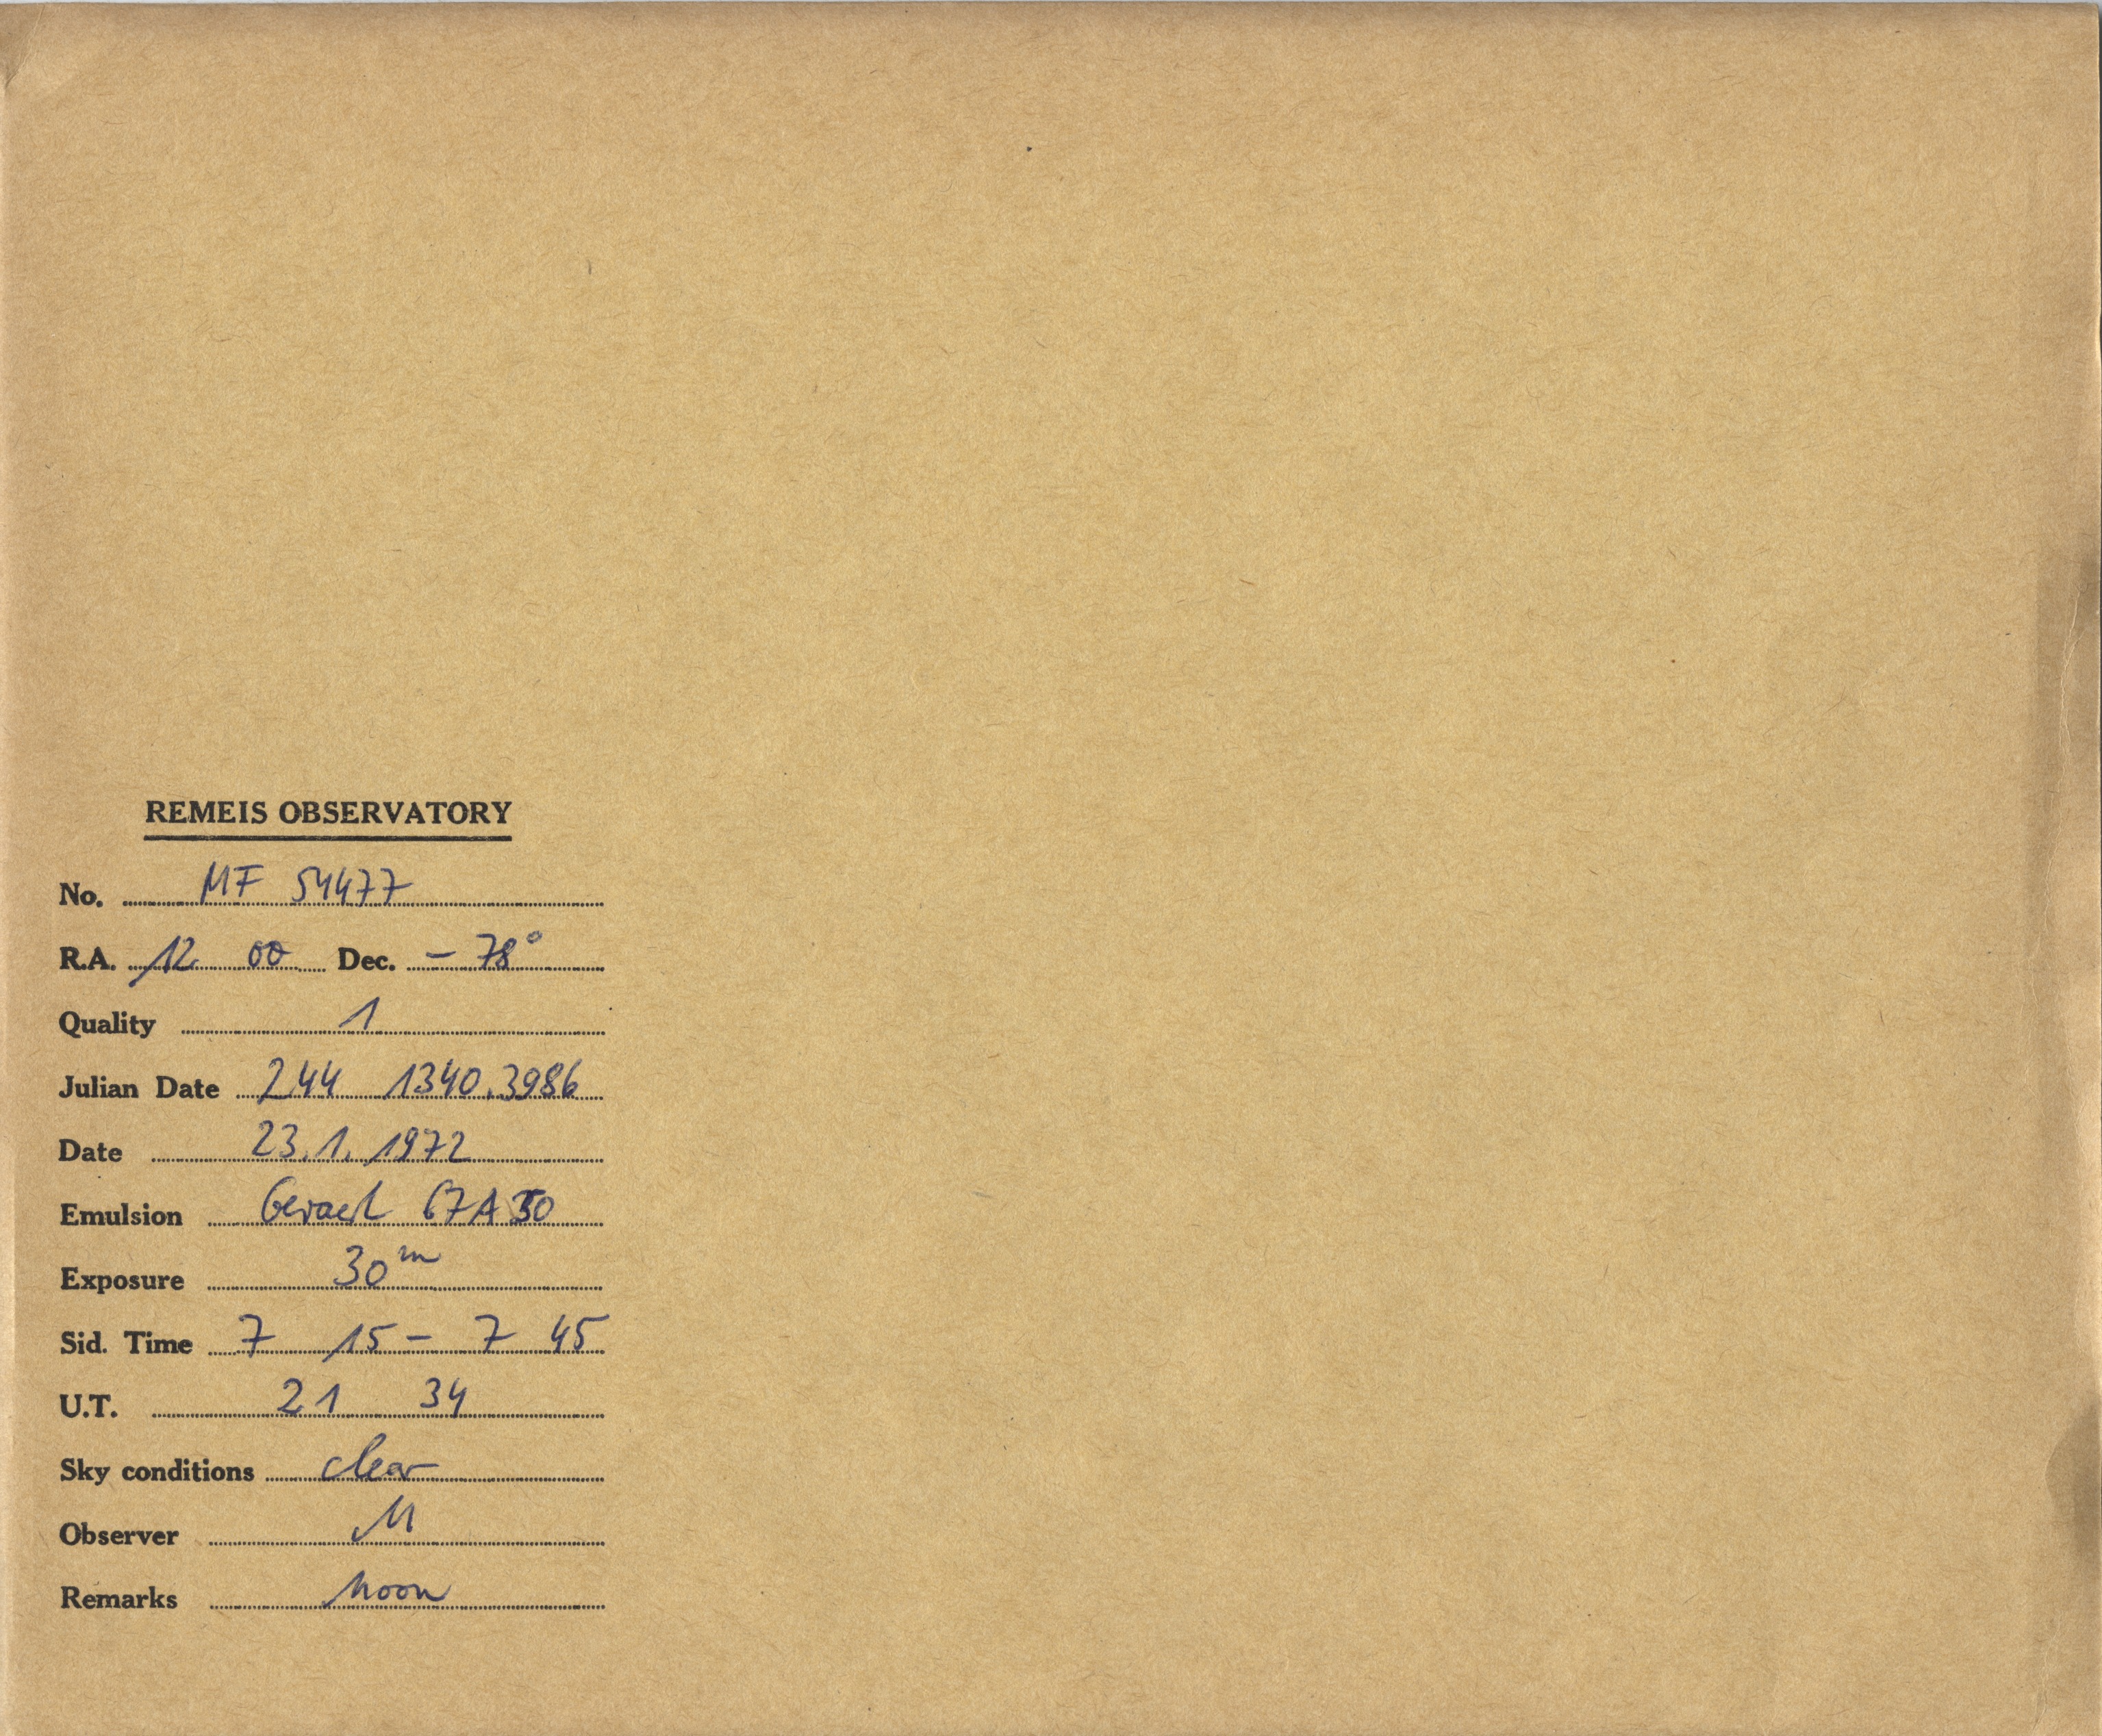 REMEIS OBSERVATORY
No. MF 54477
R.A. 12 00 Dec. – 78°
Quality 1
Julian Date 244 1340.3986
Date 23.1.1972
Emulsion Gevaert 67A50
Exposure 30m
Sid. Time 7 15 – 7 45
U.T. 21 34
Sky conditions clear
Observer M
Remarks Moon